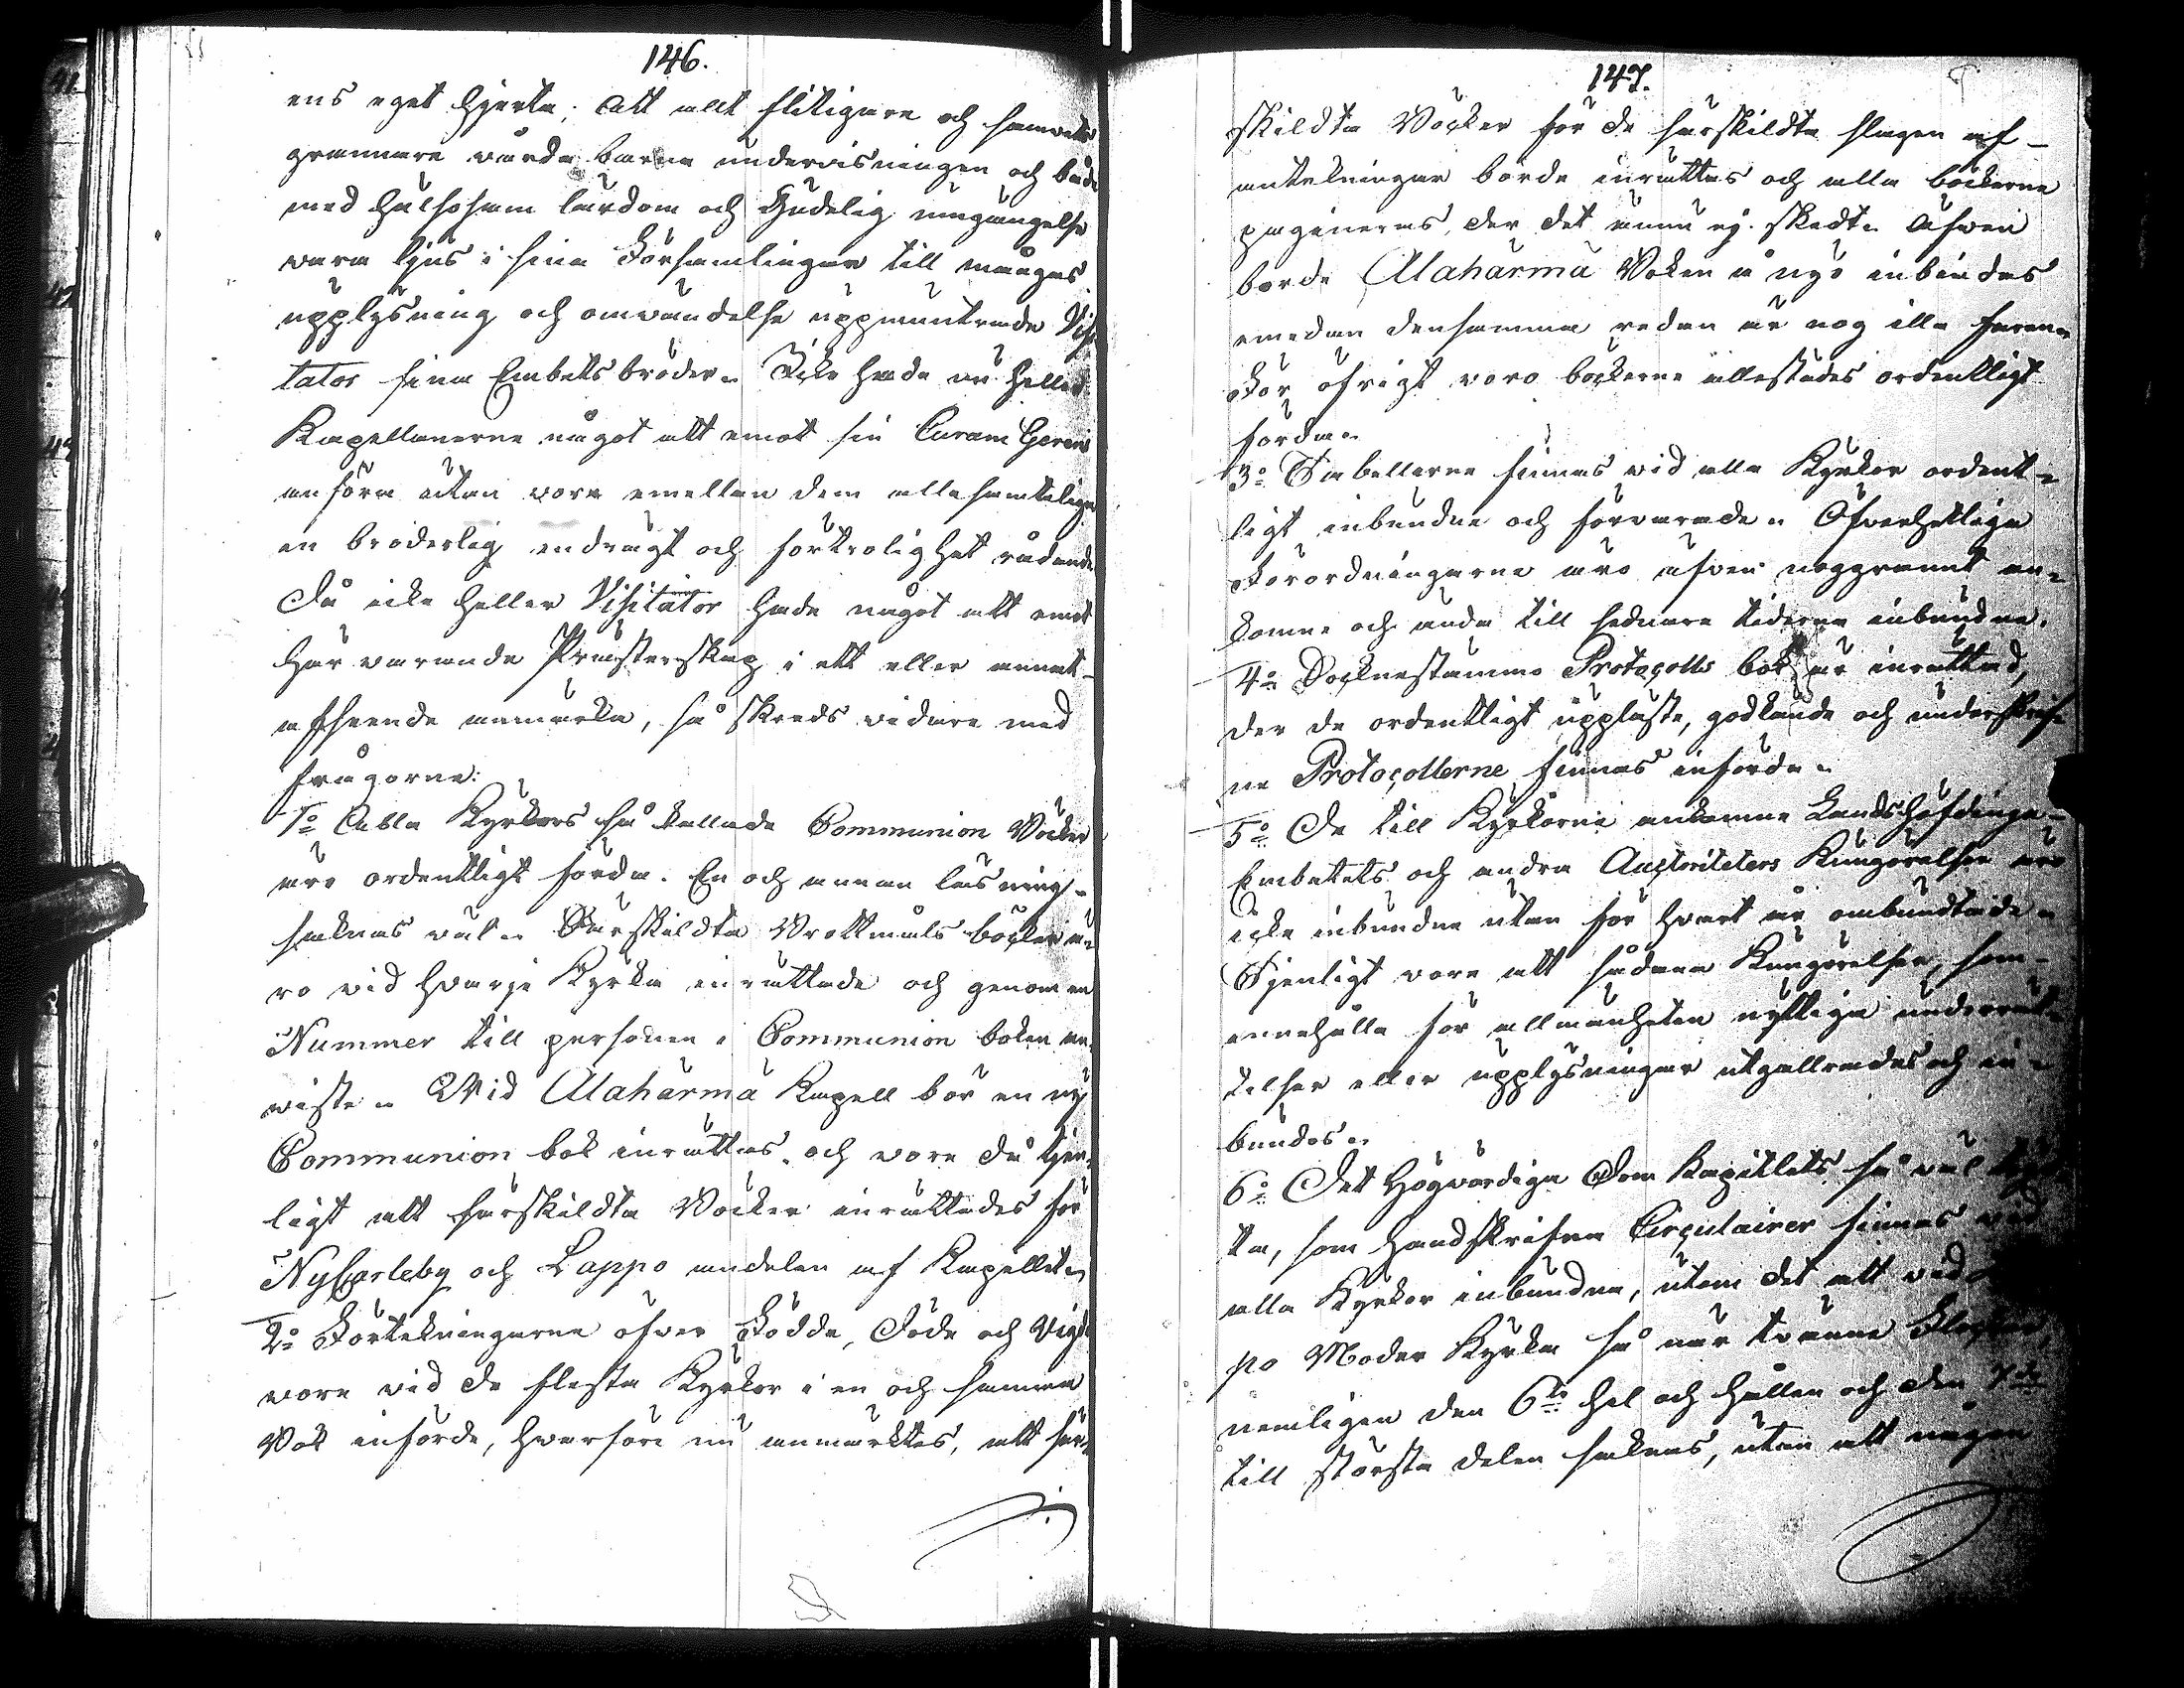 146.
ens eget hjerta. Att allt flitigare och samvets
grannare vårda barna undervisningen och både
med hälsosam lärdom och Gudelig umgängelse
vara ljus i sina Församlingar till mångas
upplysning och omvändelse uppmuntrade Visi
tator sina Embets bröder. Icke hade nu heller
Kapellanerne något att emot sin Curam Gerens
anföra utan vore emellan dem alla samtelige
en broderlig endrägt och förtrolighet rådande
Då icke heller Visitator hade något att emot
här varande Presterskap i ett eller annat
afseende anmärka, så skreds vidare med
frågorne:
1o Alla Kyrkors så kallade Communion Böcker
äro ordentligt förda. En och annan läsning
saknas väl. Särskildta Brottmåls böcker ä-
ro vid hvarje Kyrka inrättade och genom en
Nummer till personen i Communion boken an-
viste. Vid Alahärmä Kapell bör en ny
Communion bok inrättas, och vore då tjen-
ligt att särskildta Böcker inrättades för
NyCarleby och Lappo andelen af Kapellet.
2o Förtekningarne öfver Födde, Döde och Vigde
vore vid de flesta Kyrkor i en och samma
Bok införde, hvarföre nu anmärktes, att sär-
147.
skildta Böcker för de särskildta slagen af
antekningar borde inrättas och alla böckerne
pagineras, der det ännu ej skedt. Äfven
borde Alahärmä Boken å nyo inbindas
emedan densamma redan är nog illa faren.
För öfrigt voro böckerne allestädes ordentligt
förda.
3o Tabellerne finnas vid alla Kyrkor ordent-
ligt inbundne och förvarade. Öfverhetliga
Förordningarne äro äfven noggrannt an-
komne och ända till sednare tiderne inbundne.
4o Socknestämmo Protocolls bok är inrättad,
der de ordentligt uppläste, godkände och underskrif-
ne Protocollerne finnas införde.
5o De till Kyrkorne ankomne Landshöfdinge
Embetets och andra Auctoriteters Kungörelser äro
icke inbundne utan för hvart år ombundtade.
Tjenligt vore att sådana Kungörelser, som
innehålla för allmänheten nyttiga underrät-
telser eller upplysningar utgallrades och in-
bundos.
6o Det Högvördiga Dom Kapitlets så väl
ta, som handskrifna Circulairer finnas vid
alla Kyrkor inbundna, utom det att vid
po Moder Kyrka så när tvänne
nemligen den 6te hel och hållen och den 7de
till största delen saknas, utan att någon